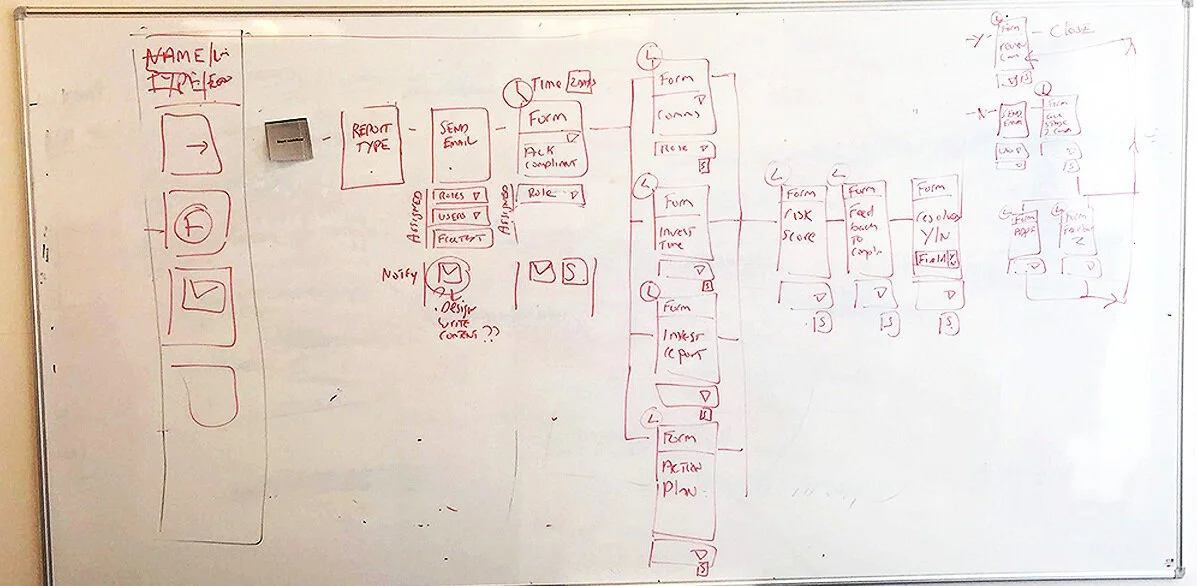 NAME/
TYPE/
F
REPORT
TYPE
SEND
EMAIL
ASSIGNED
ROLES
USERS
FREETEXT
Notify
Design
WRITE
CONTENT ??
Time 2 days
Form
ACK
COMPLAINT
ASSIGNED
Role
S
Form
Comms
Role
S
Form
INVEST
S
Form
INVEST
report
S
Form
ACTION
Plan
S
Form
risk
Score
S
Form
Feed
back
To
S
Form
resolved
Y/N
Field Y/N
S
-Y-
Form
review
- CLOSE
S
-N-
SEND
Email
Form
Form
Form
2